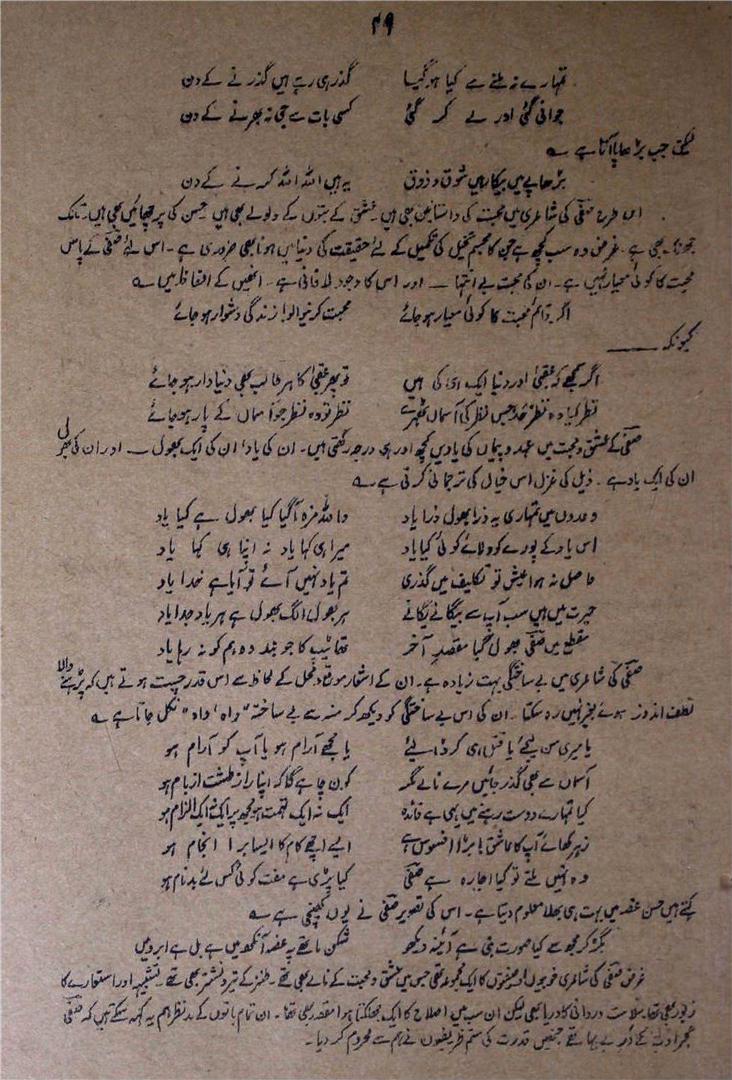 ۴۹
تمہارے نہ ملنے سے کیا ہوگیا گذر ہی رہے ہیں گذرنے کے دن
جوانی گئی اور لے کر گئی کسی بات سے جی نہ بھرنے کے دن
لیکن جب بڑھاپا آتا ہے ؎
بڑھاپے میں بیکار ہیں شوق و ذوق یہ ہیں اللہ اللہ کرنے کے دن
اس طرح صفیؔ کی شاعری میں محبت کی داستانیں بھی ہیں۔ عشق کے ولولے بھی ہیں حسن کی پرچھائیں بھی ہیں۔ تانک
جھونک بھی ہے۔ غرض وہ سب کچھ ہے جن کا تخیل کی تکمیل کے لئے حقیقت کی دنیا میں ہونا بھی ضروری ہے۔ اس لئے صفیؔ کے پاس
محبت کا کوئی معیار نہیں ہے۔ ان کی محبت بے انتہا ــ اور اس کا وجود لافانی ہے۔ انھیں کے الفاظ میں ؎
اگر قائم محبت کا کوئی معیار ہو جائے محبت کرنیوالو! زندگی دشوار ہو جائے
کیونکہ ــــــ
اگر سمجھے کہ عقبیٰ اور دنیا ایک ہی کی ہیں تو پھر عقبیٰ کا ہر طالب بھی دنیادار ہو جائے
نظر کیا وہ نظر حد جس نظر کی آسماں ٹھہرے نظر تو وہ نظر جو آسماں کے پار ہو جائے
صفیؔ کے عشق و محبت میں عہد و پیماں کی یادیں کچھ اور ہی درجہ رکھتی ہیں۔ ان کی یاد ان کی ایک بھول ــ اور ان کی بھول
ان کی ایک یاد ہے۔ ذیل کی غزل اس خیال کی ترجمانی کرتی ہے ؎
وعدوں میں تمہاری یہ ذرا بھول ذرا یاد واللہ مزہ آگیا کیا بھول ہے کیا یاد
اس یاد کے پورے کو دلائے کوئی کیا یاد میرا ہی کہا یاد نہ اپنا ہی کہا یاد
حاصل نہ ہوا عیش تو تکلیف میں گذری تم یاد نہیں آئے تو آیا ہے خدا یاد
حیرت میں ہیں سب آپ سے بیگانے یگانے ہر بھول الگ بھول ہے ہر یاد جدا یاد
مقطع میں صفیؔ بھول گیا مقصد آخر تھا ٹیپ کا جو بند وہ ہم کو نہ رہا یاد
صفیؔ کی شاعری میں بے ساختگی بہت زیادہ ہے۔ ان کے اشعار موقع و محل کے لحاظ سے اس قدر چست ہوتے ہیں کہ پڑھنے والا
لطف اندوز ہوئے بغیر نہیں رہ سکتا۔ ان کی اس بے ساختگی کو دیکھ کر منہ سے بے ساختہ "واہ، واہ" نکل جاتا ہے ؎
یا میری سن لیجئے یا قتل ہی کر ڈالئے یا مجھے آرام ہو یا آپ کو آرام ہو
آسماں سے بھی گذر جائیں مرے نالے مگر کون چاہے گا کہ اپنا راز طشت از بام ہو
کیا تمہارے دوست رہنے میں یہی ہے فائدہ ایک نہ ایک تہمت ہو مجھ پر ایک نہ ایک الزام ہو
زہر کھائے آپ کا عاشق! بڑا افسوس ہے ایسے اچھے کام کا ایسا برا انجام ہو
وہ نہیں ملتے تو کیا اجارہ ہے صفیؔ کیا پڑی ہے مفت کوئی کس لئے بدنام ہو
کہتے ہیں حسن غصہ میں بہت ہی بھلا معلوم دیتا ہے۔ اس کی تصویر صفیؔ نے یوں کھینچی ہے ؎
بگڑ کر مجھ سے کیا صورت بنی ہے آئینہ دیکھو شکن ماتھے پہ غصہ آنکھ میں ہے بل ہے ابرو میں
غرض صفیؔ کی شاعری خوبیوں اور کا ایک مجموعہ تھی جس میں عشق و محبت کے نالے بھی تھے۔ طنز کے تیر و نشتر بھی تھے۔ تشبیہہ اور استعارے کا
زیور بھی تھا، سلاست و روانی کا دریا بھی لیکن ان سب میں اصلاح کا ایک جھلکتا ہوا مقصد بھی تھا۔ ان تمام باتوں کے مدنظر ہم یہ کہہ سکتے ہیں کہ صفیؔ
کے بہا تھے جنھیں قدرت کی ستم ظریفیوں نے ہم سے محروم کر دیا۔